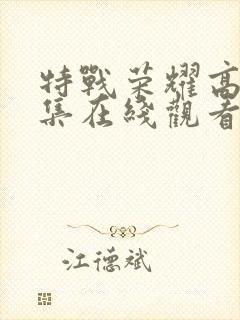 特戰荣耀高
集在綫觀看
江德斌